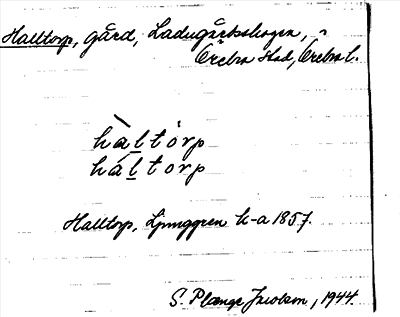 Halltorp, gård, Ladugårdsskogen,
Örebro stad, Örebro l.
hàltórp
háltorp
Halltorp, Ljunggren k-a 1857.
S. Plange Jacobson, 1944.